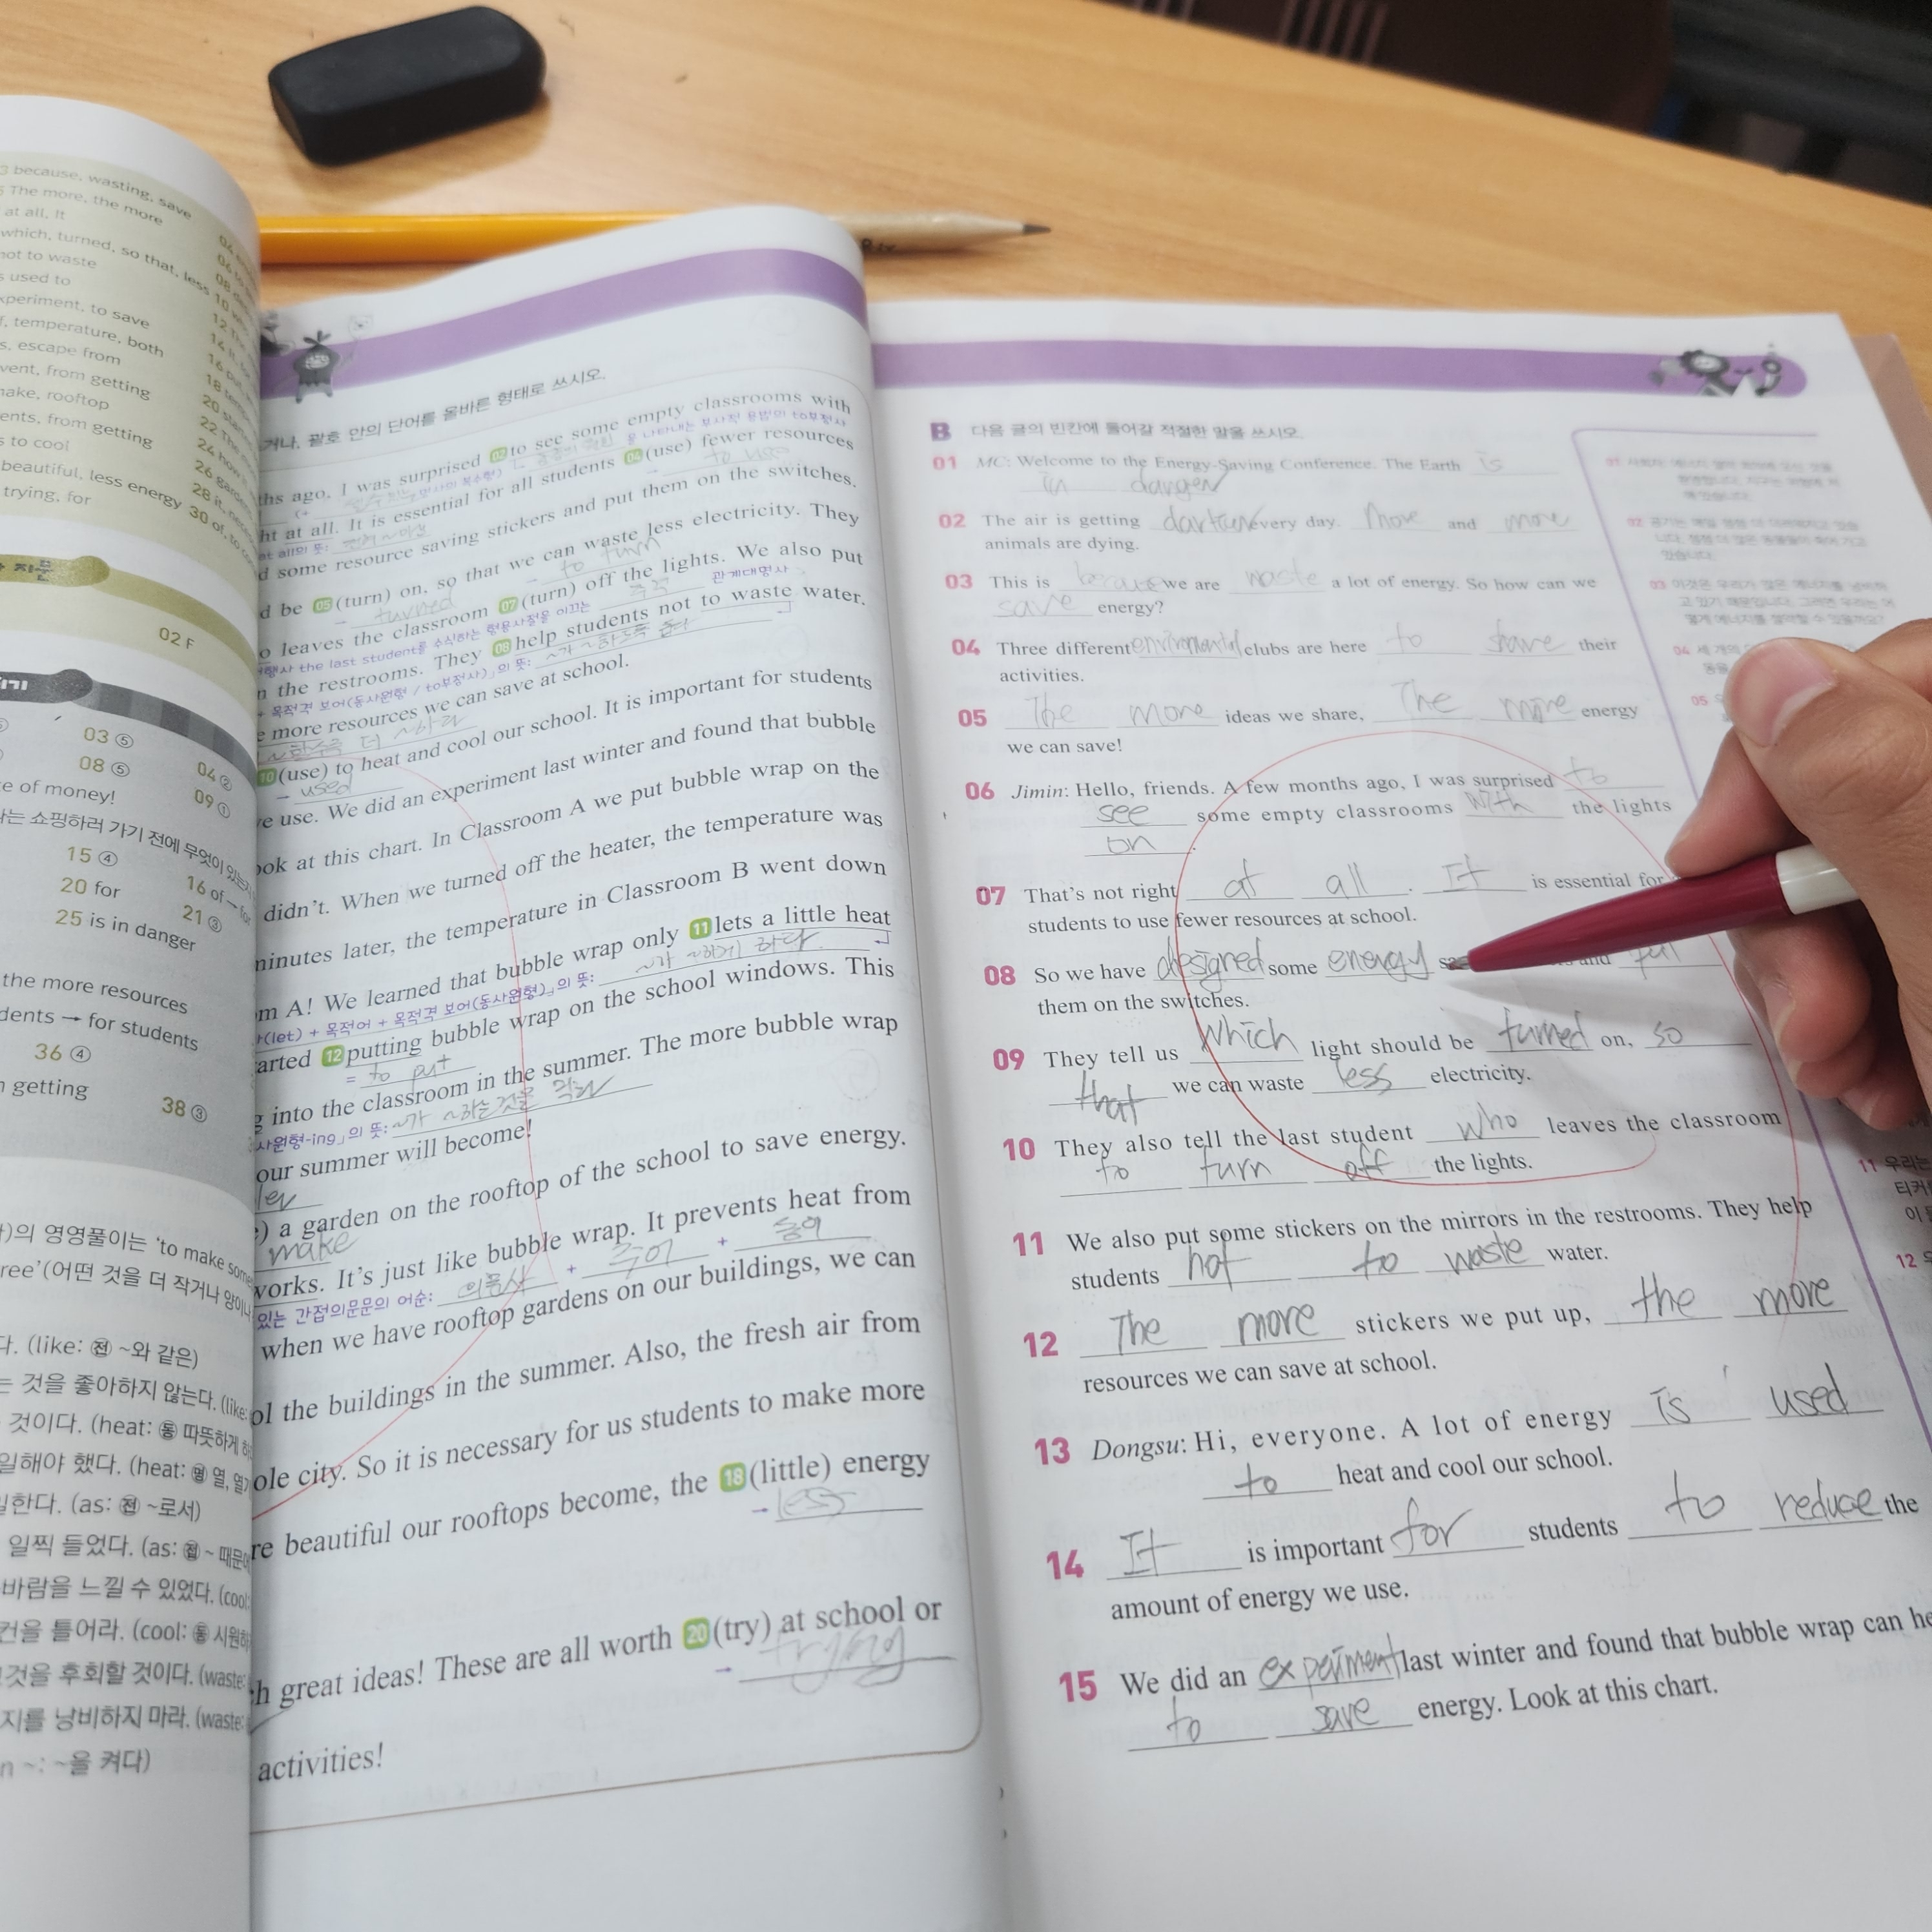 3 because, wasting, save
The more, the more
at all, It
which, turned, so that, less
not to waste
used to
experiment, to save
temperature, both
escape from
vent, from getting
make, rooftop
ents, from getting
to cool
beautiful, less energy
trying, for
10
12
14
16
18
20
22
24 how
26
28 it,
30 of, to
02 F
03 ⑤
04 ②
08 ⑤
09 ①
e of money!
는 쇼핑하러 가기 전에 무엇이 있는지
15 ④
16 of → for
20 for
21 ③
25 is in danger
the more resources
dents → for students
36 ④
n getting
38 ③
)의 영영풀이는 'to make some
ree'(어떤 것을 더 작거나 양이나
다. (like: 전 ~와 같은)
는 것을 좋아하지 않는다. (like:
것이다. (heat: 동 따뜻하게 하
일해야 했다. (heat: 명 열, 열기
일한다. (as: 전 ~로서)
일찍 들었다. (as: 접 ~ 때문에
바람을 느낄 수 있었다. (cool:
건을 틀어라. (cool: 동 시원하
것을 후회할 것이다. (waste:
지를 낭비하지 마라. (waste:
n ~: ~을 켜다)
거나, 괄호 안의 단어를 올바른 형태로 쓰시오.
ths ago, I was surprised 02 to see some empty classrooms with
을 나타내는 부사적 용법의 to부정사
ht at all. It is essential for all students 04 (use) fewer resources
to use
at all의 뜻:
d some resource saving stickers and put them on the switches.
d be 05 (turn) on, so that we can waste less electricity. They
turned
to turn
o leaves the classroom 07 (turn) off the lights. We also put
행사 the last student를 수식하는 형용사절을 이끄는 주격 관계대명사
n the restrooms. They 08 help students not to waste water.
+ 목적격 보어(동사원형 / to부정사)」의 뜻: ~가 ~하도록 돕다
e more resources we can save at school.
~할수록 더 ~하다
10 (use) to heat and cool our school. It is important for students
→ used
e use. We did an experiment last winter and found that bubble
ook at this chart. In Classroom A we put bubble wrap on the
didn't. When we turned off the heater, the temperature was
minutes later, the temperature in Classroom B went down
om A! We learned that bubble wrap only 11 lets a little heat
(let) + 목적어 + 목적격 보어(동사원형)」의 뜻: ~가 ~하게 하다
arted 12 putting bubble wrap on the school windows. This
= to put
g into the classroom in the summer. The more bubble wrap
사원형-ing」의 뜻: ~가 ~하는 것을 막다
our summer will become!
ler
) a garden on the rooftop of the school to save energy.
make
works. It's just like bubble wrap. It prevents heat from
있는 간접의문문의 어순: 의문사 + 주어 + 동사
when we have rooftop gardens on our buildings, we can
ol the buildings in the summer. Also, the fresh air from
ole city. So it is necessary for us students to make more
re beautiful our rooftops become, the 18 (little) energy
→ less
h great ideas! These are all worth 20 (try) at school or
→ trying
activities!
B 다음 글의 빈칸에 들어갈 적절한 말을 쓰시오.
01 MC: Welcome to the Energy-Saving Conference. The Earth is
in danger
02 The air is getting every day. More and more
animals are dying.
03 This is because we are waste a lot of energy. So how can we
save energy?
04 Three different clubs are here to share their
activities.
05 The more ideas we share, The more energy
we can save!
06 Jimin: Hello, friends. A few months ago, I was surprised to
see some empty classrooms with the lights
on.
07 That's not right at all. It is essential for
students to use fewer resources at school.
08 So we have designed some energy and
them on the switches.
09 They tell us which light should be turned on, so
that we can waste less electricity.
10 They also tell the last student who leaves the classroom
to turn off the lights.
11 We also put some stickers on the mirrors in the restrooms. They help
students not to waste water.
12 The more stickers we put up, the more
resources we can save at school.
13 Dongsu: Hi, everyone. A lot of energy is used
to heat and cool our school.
14 It is important for students to reduce the
amount of energy we use.
15 We did an experiment last winter and found that bubble wrap can he
to save energy. Look at this chart.
05
11 우리는
티커
이
12